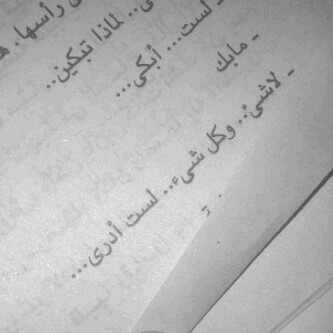 رأسها. ه
.. لماذا تبكين..
- لست... أبكى...
- مابك
- لاشىء.. وكل شىء.. لست أدرى...